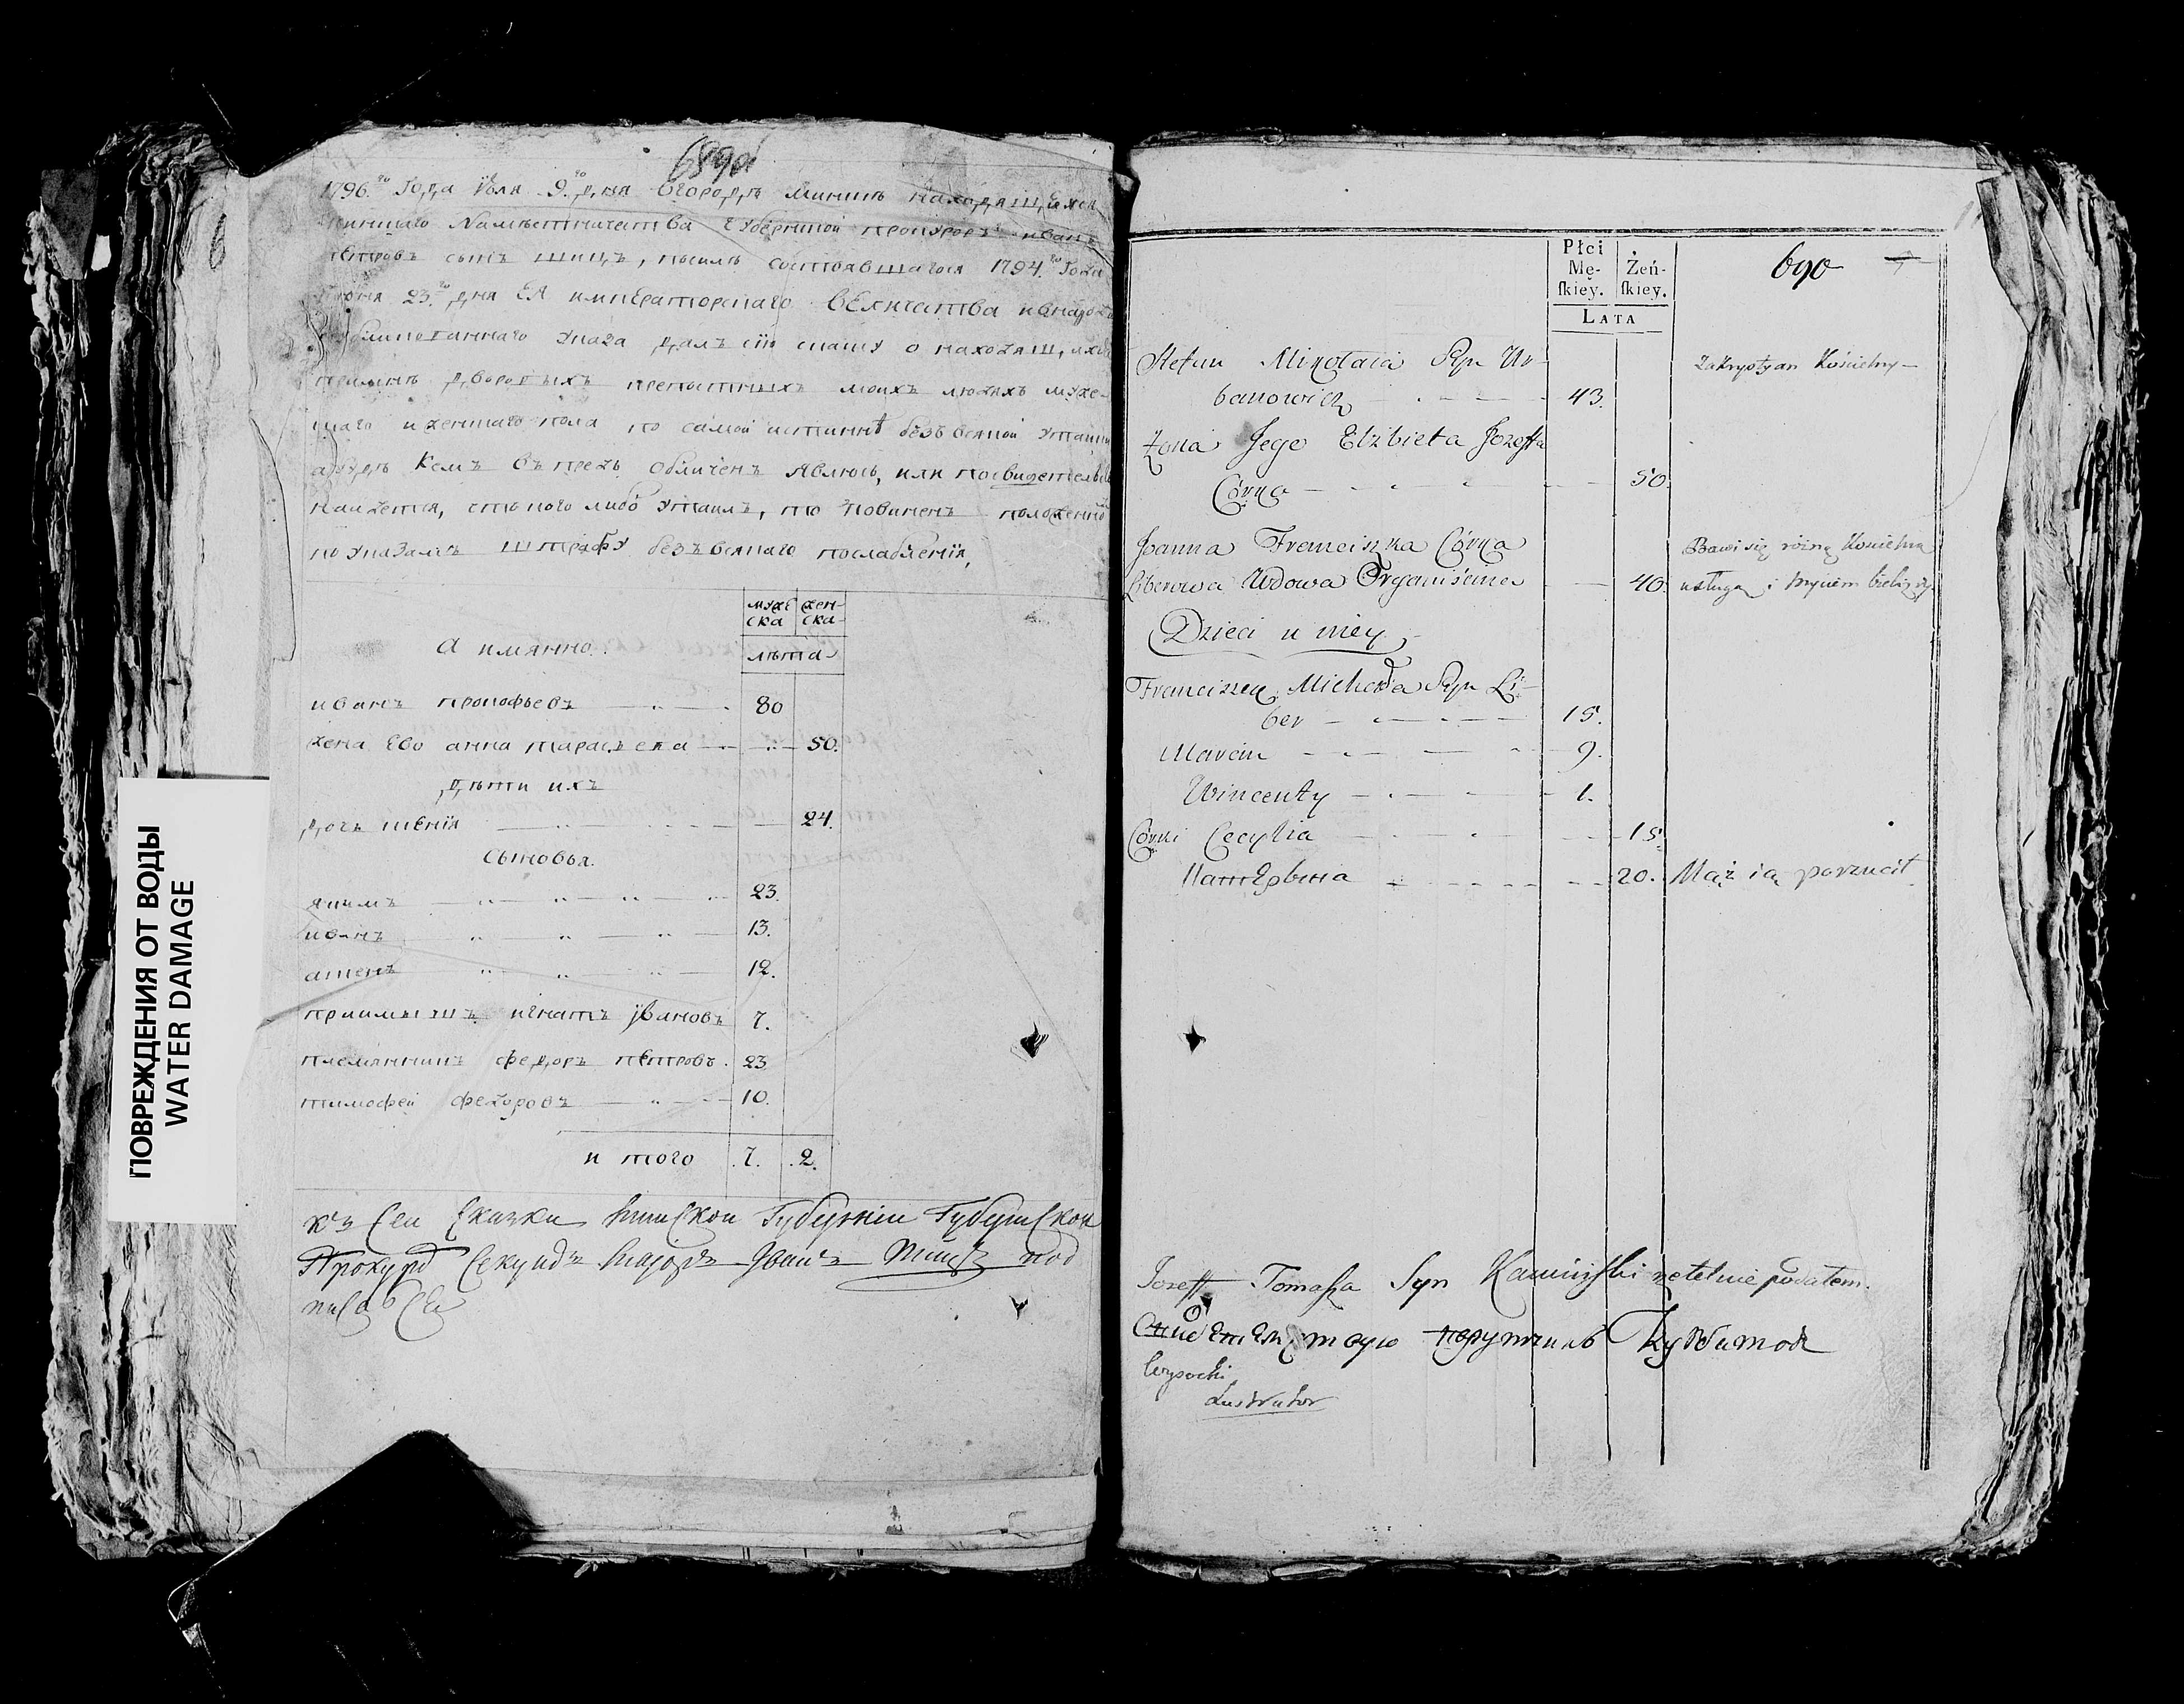 689об
1796.го Года Июля 9.го дня в городѣ Минскѣ находящейся
Минскаго Намѣстничества губернской прокуроръ Иванъ
Петровъ сынъ Шицъ, посилѣ состоявшагося 1794.го Года
Июня 23.го дня ЕЯ императорскаго величества
указа далъ сїю сказку о находящихся
при мнѣ дворовыхъ крепостныхъ моихъ людяхъ муже-
скаго и женскаго пола по самой истиннѣ безъ всякой утайки
а буде кемъ въ предь обличенъ явлюсь, или посвидетельству
найдется, что кого либо утаилъ, то повиненъ положенно
по указамъ штрафу безъ всякаго послабленїя,
муже ска
жен- ска-
лѣта
А имянно:
иванъ прокофьевъ 80
жена Ево анна тарасьева 50.
дѣти ихъ
дочь ксенїя 24.
сыновья.
якимъ 23.
иванъ 13.
12.
приимышъ игнатъ ивановъ 7.
племянникъ федоръ петровъ. 23
тимофей федоровъ 10.
и того .7. .2.
къ сей скаске Минской Губернїи Губернской
Прокуроръ Секундъ Маїоръ Иванъ Шицъ под
писался
ПОВРЕЖДЕНИЯ ОТ ВОДЫ
WATER DAMAGE
690
Płci
Mę-
ſkiey.
Żeń-
ſkiey.
LATA
Stefan Mikołaia Syn Ur-
banowicz 43. Zakrystyan Kościelny
Żona Jego Elżbieta Jozeffa
Córka 50
Joanna Franciszka Córka Bawi się rożną Koscielną
Liberowa Wdowa Organiścina 40. usługą i myciem bielizny
Dzieci u niey
Franciszek Michała Syn Li-
ber 15.
Marcin 9.
Wincenty 1.
Córki Cecylia 15.
Катерына 20. Mąż ią porzucił
Jozeff Tomaſza Syn Kamiński rzetelnie podałem.
Свидетельствую порутчикъ Курбатов
Wysocki
Lustrator